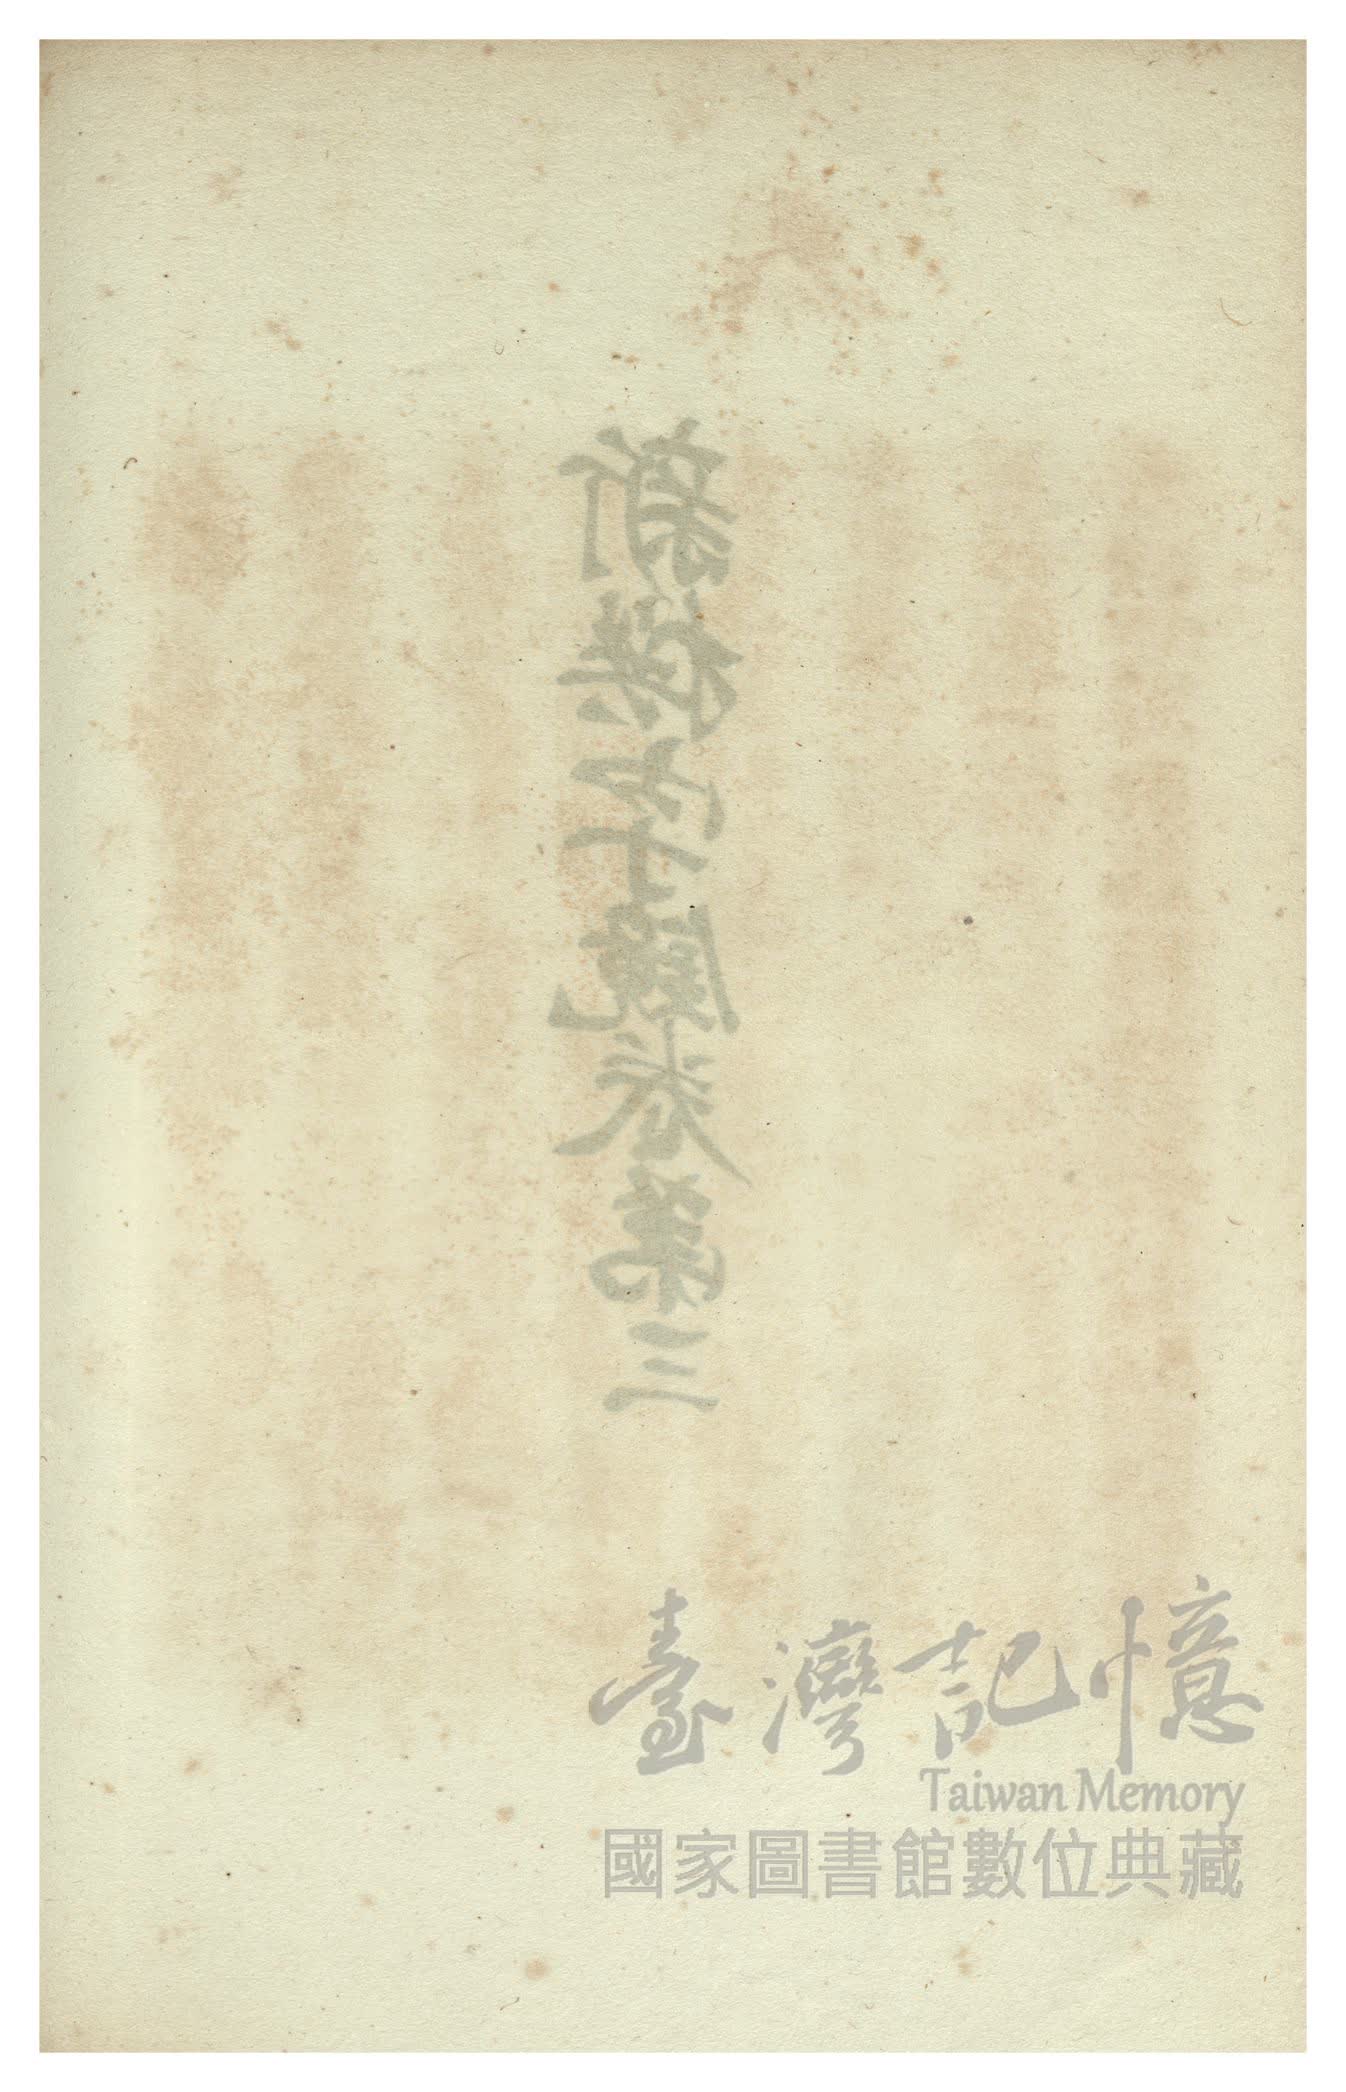 新撰字鏡卷第三
臺灣記憶
Taiwan Memory
國家圖書館數位典藏